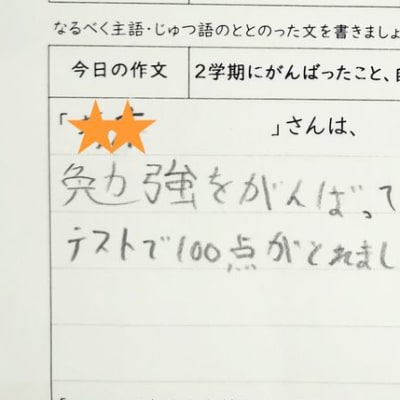 なるべく主語・じゅつ語のととのった文を書きましょ
今日の作文
2学期にがんばったこと、
「 」さんは、
勉強をがんばって
テストで100点がとれまし